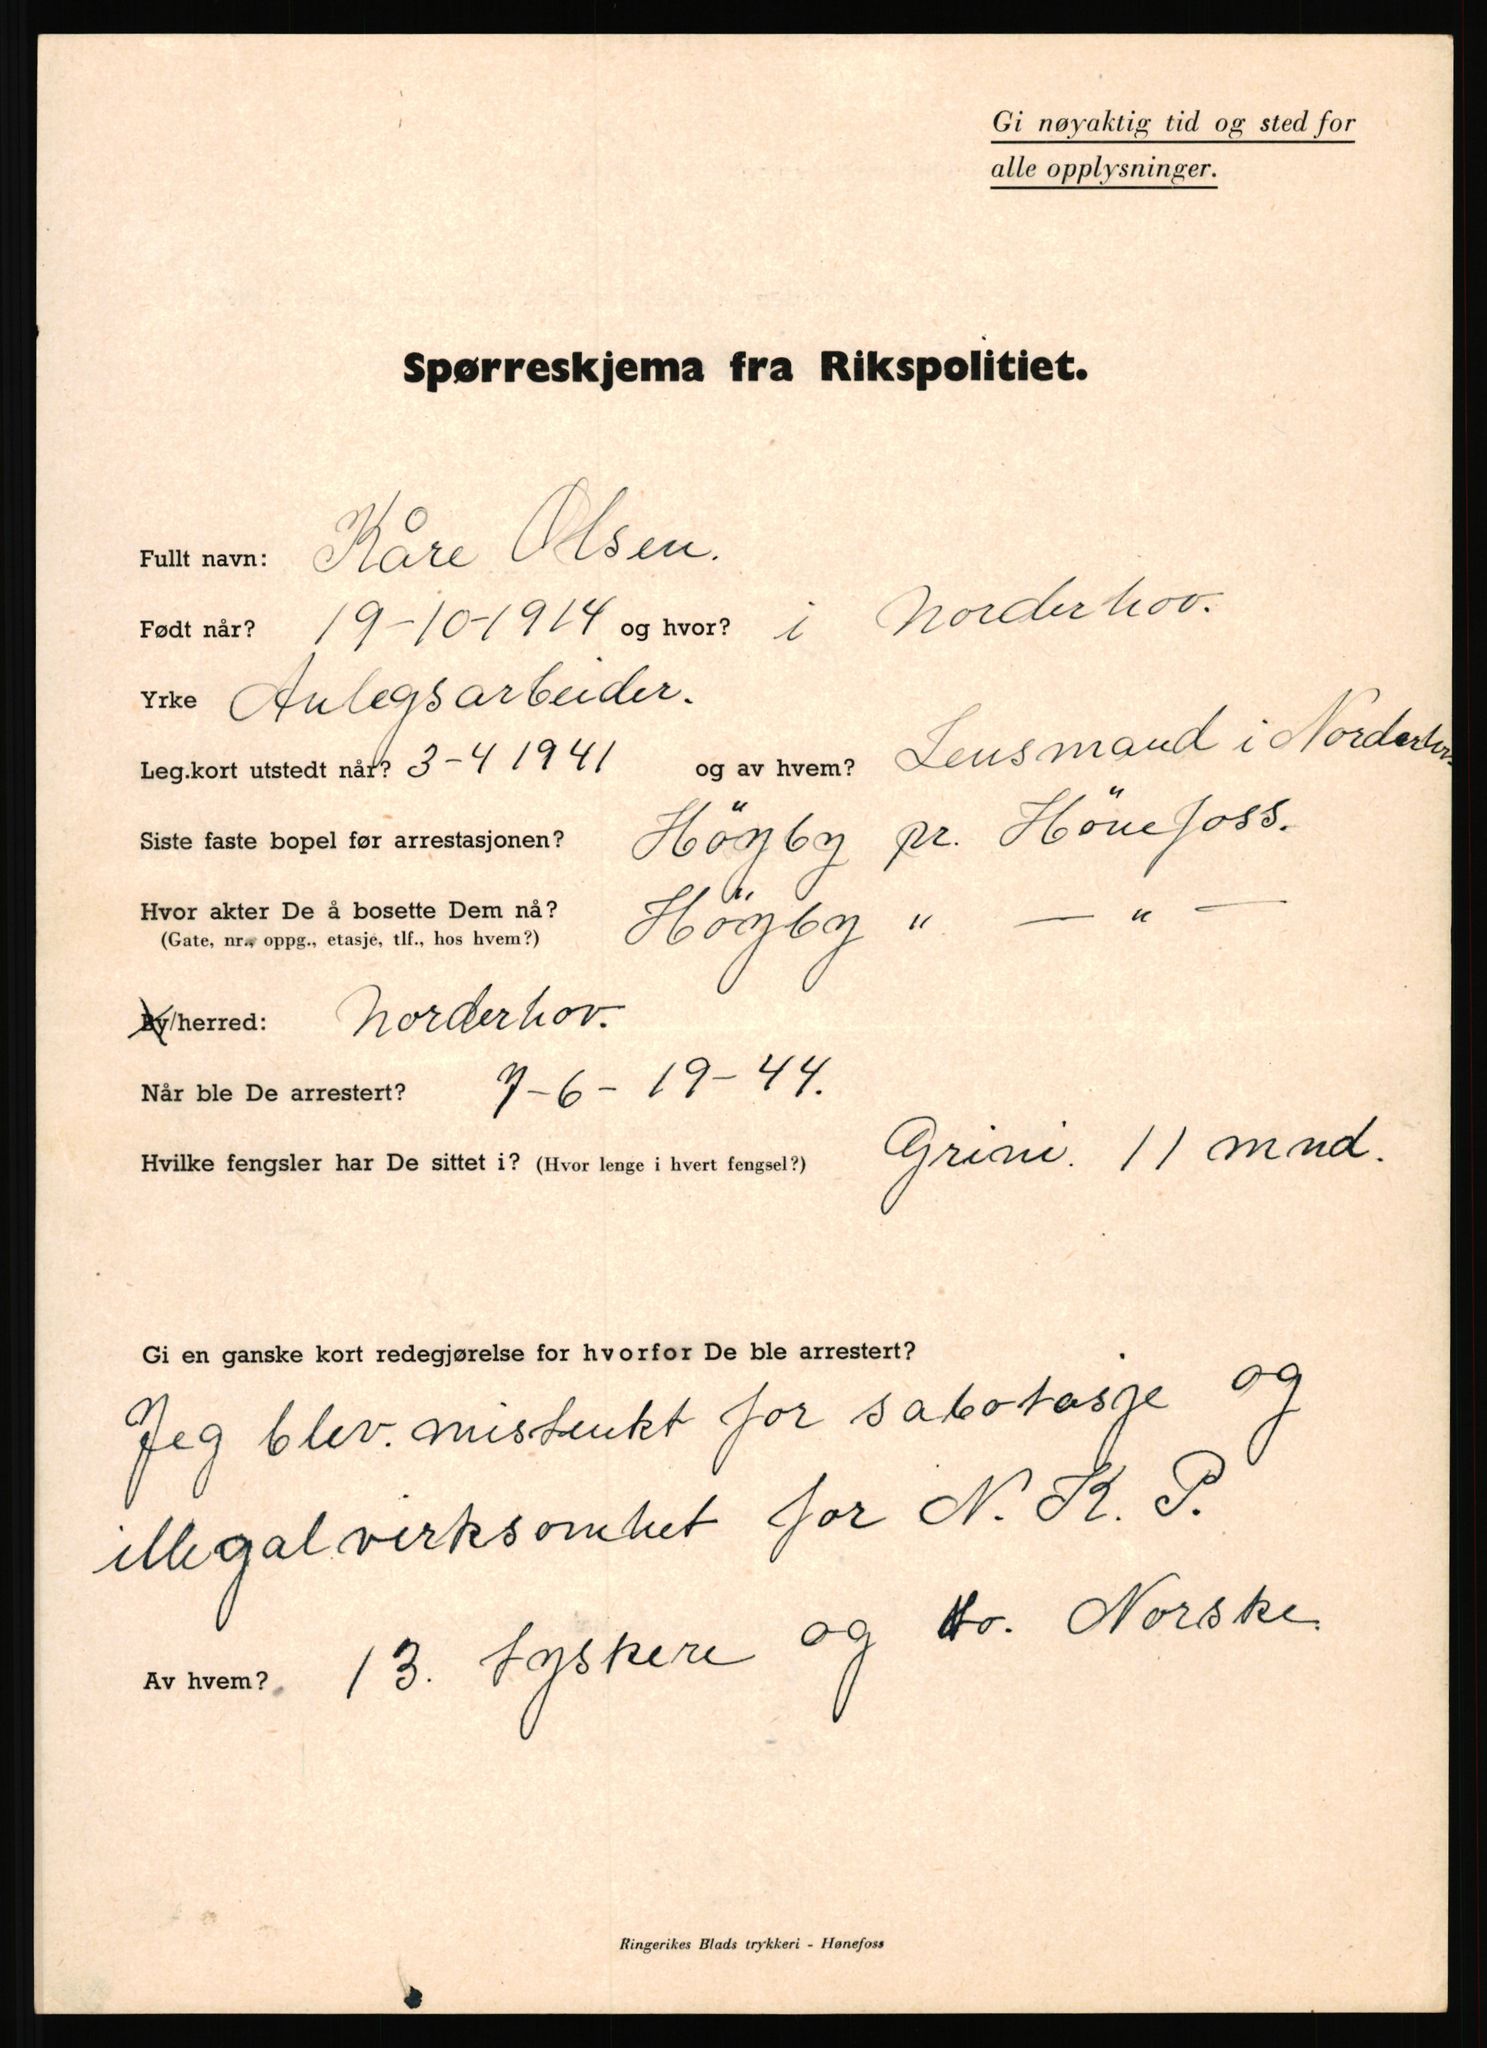 Gi nøyaktig tid og sted for
alle opplysninger.
Spørreskjema fra Rikspolitiet.
Fullt navn: Kåre Olsen.
Født når? 19-10-1914 og hvor? i Norderhov.
Yrke Anlegsarbeider.
Leg.kort utstedt når? 3-4 1941 og av hvem? Lensmand i Norderhov.
Siste faste bopel før arrestasjonen? Höyby pr. Hönefoss.
Hvor akter De å bosette Dem nå? Höyby " — " —
(Gate, nr., oppg., etasje, tlf., hos hvem?)
By/herred: Norderhov.
Når ble De arrestert? 7-6-19-44.
Hvilke fengsler har De sittet i? (Hvor lenge i hvert fengsel?) Grini. 11 mnd.
Gi en ganske kort redegjørelse for hvorfor De ble arrestert?
Jeg blev. mistenkt for sabotasje og
illegal virksomhet for N. K. P.
Av hvem? 13. tyskere og to. Norske.
Ringerikes Blads trykkeri - Hønefoss